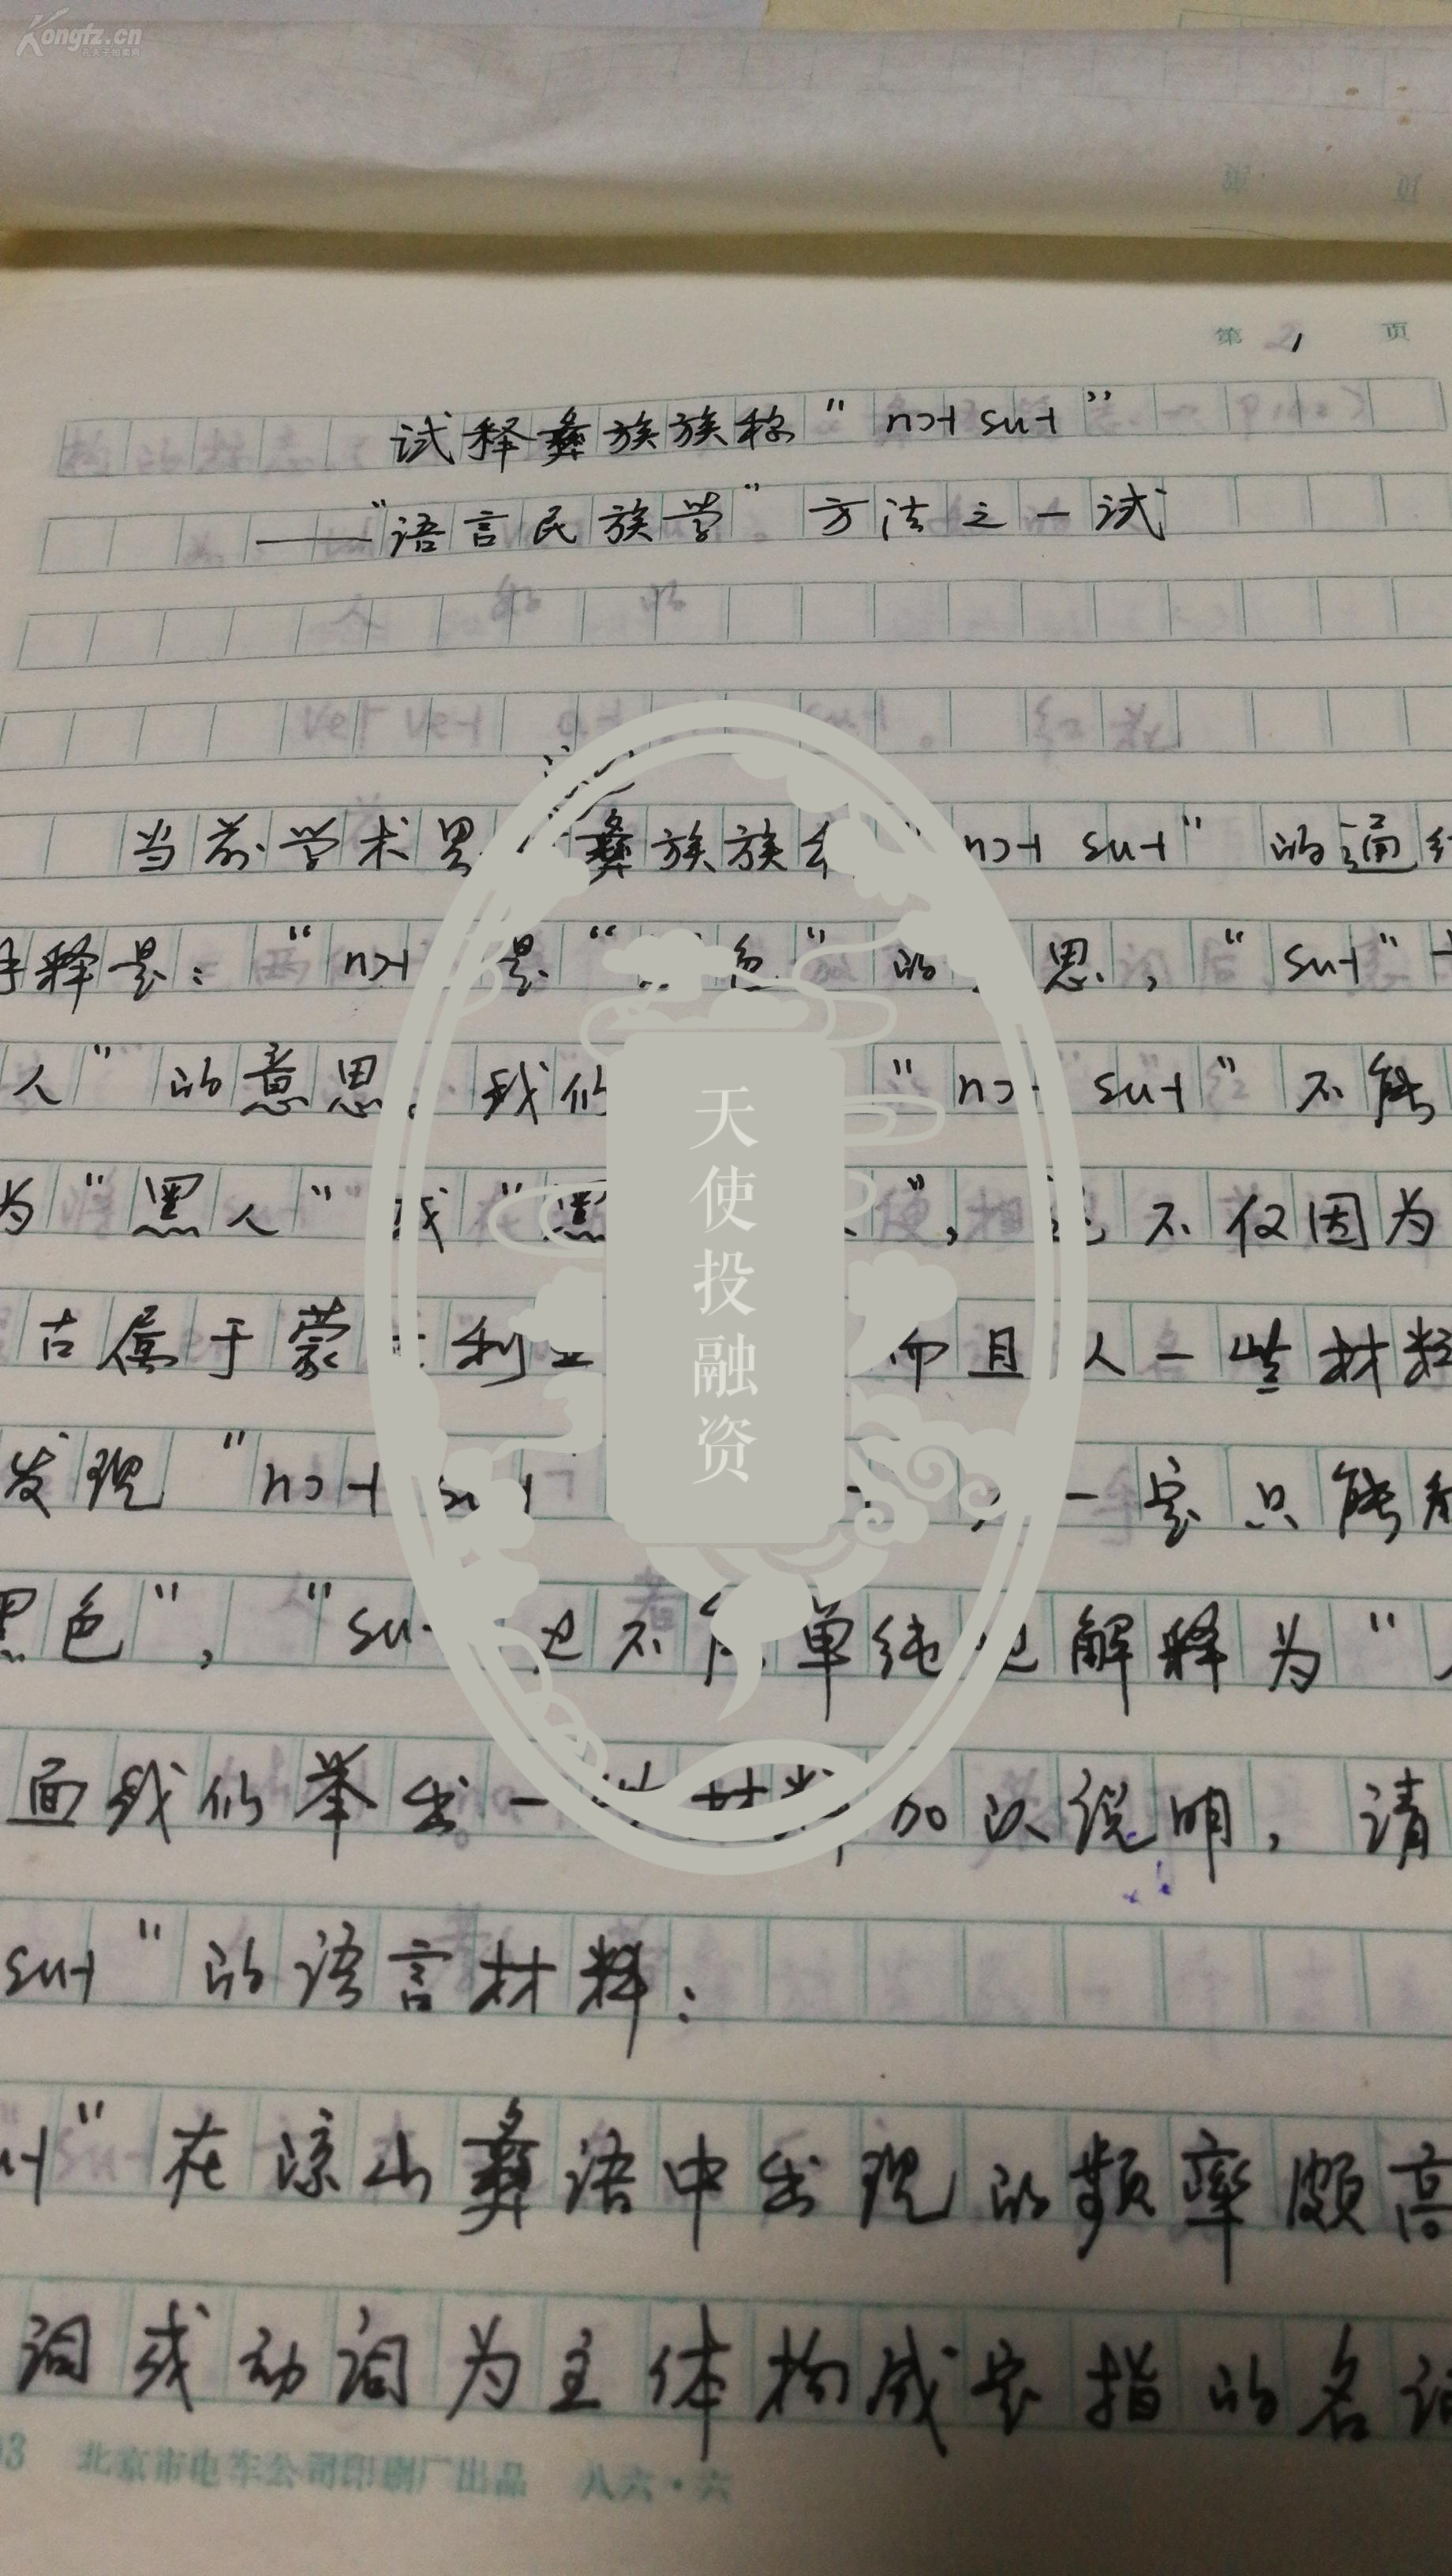 Kongfz.cn
第 21 页
试释彝族族称“nɔ˧ su˧”
——“语言民族学”方法之一试
当前学术界 彝族族 “nɔ˧ su˧”的通
释是：“nɔ˧ 是“ 色”的 思，“su˧”
人”的意思。我们 “nɔ˧ su˧”不能
为“黑人”或“黑 ”，这不仅因为
古属于蒙古利亚 而且从一些材料
发现“nɔ˧ su˧ 一定只能
黑色”，“su˧ 也不能单纯地解释为“
面我们举出一些材料加以说明，请
su˧”的语言材料：
”在凉山彝语中出现的频率颇高
词或动词为主体构成定指的名词
北京市电车公司印刷厂出品 八六·六
天使投融资